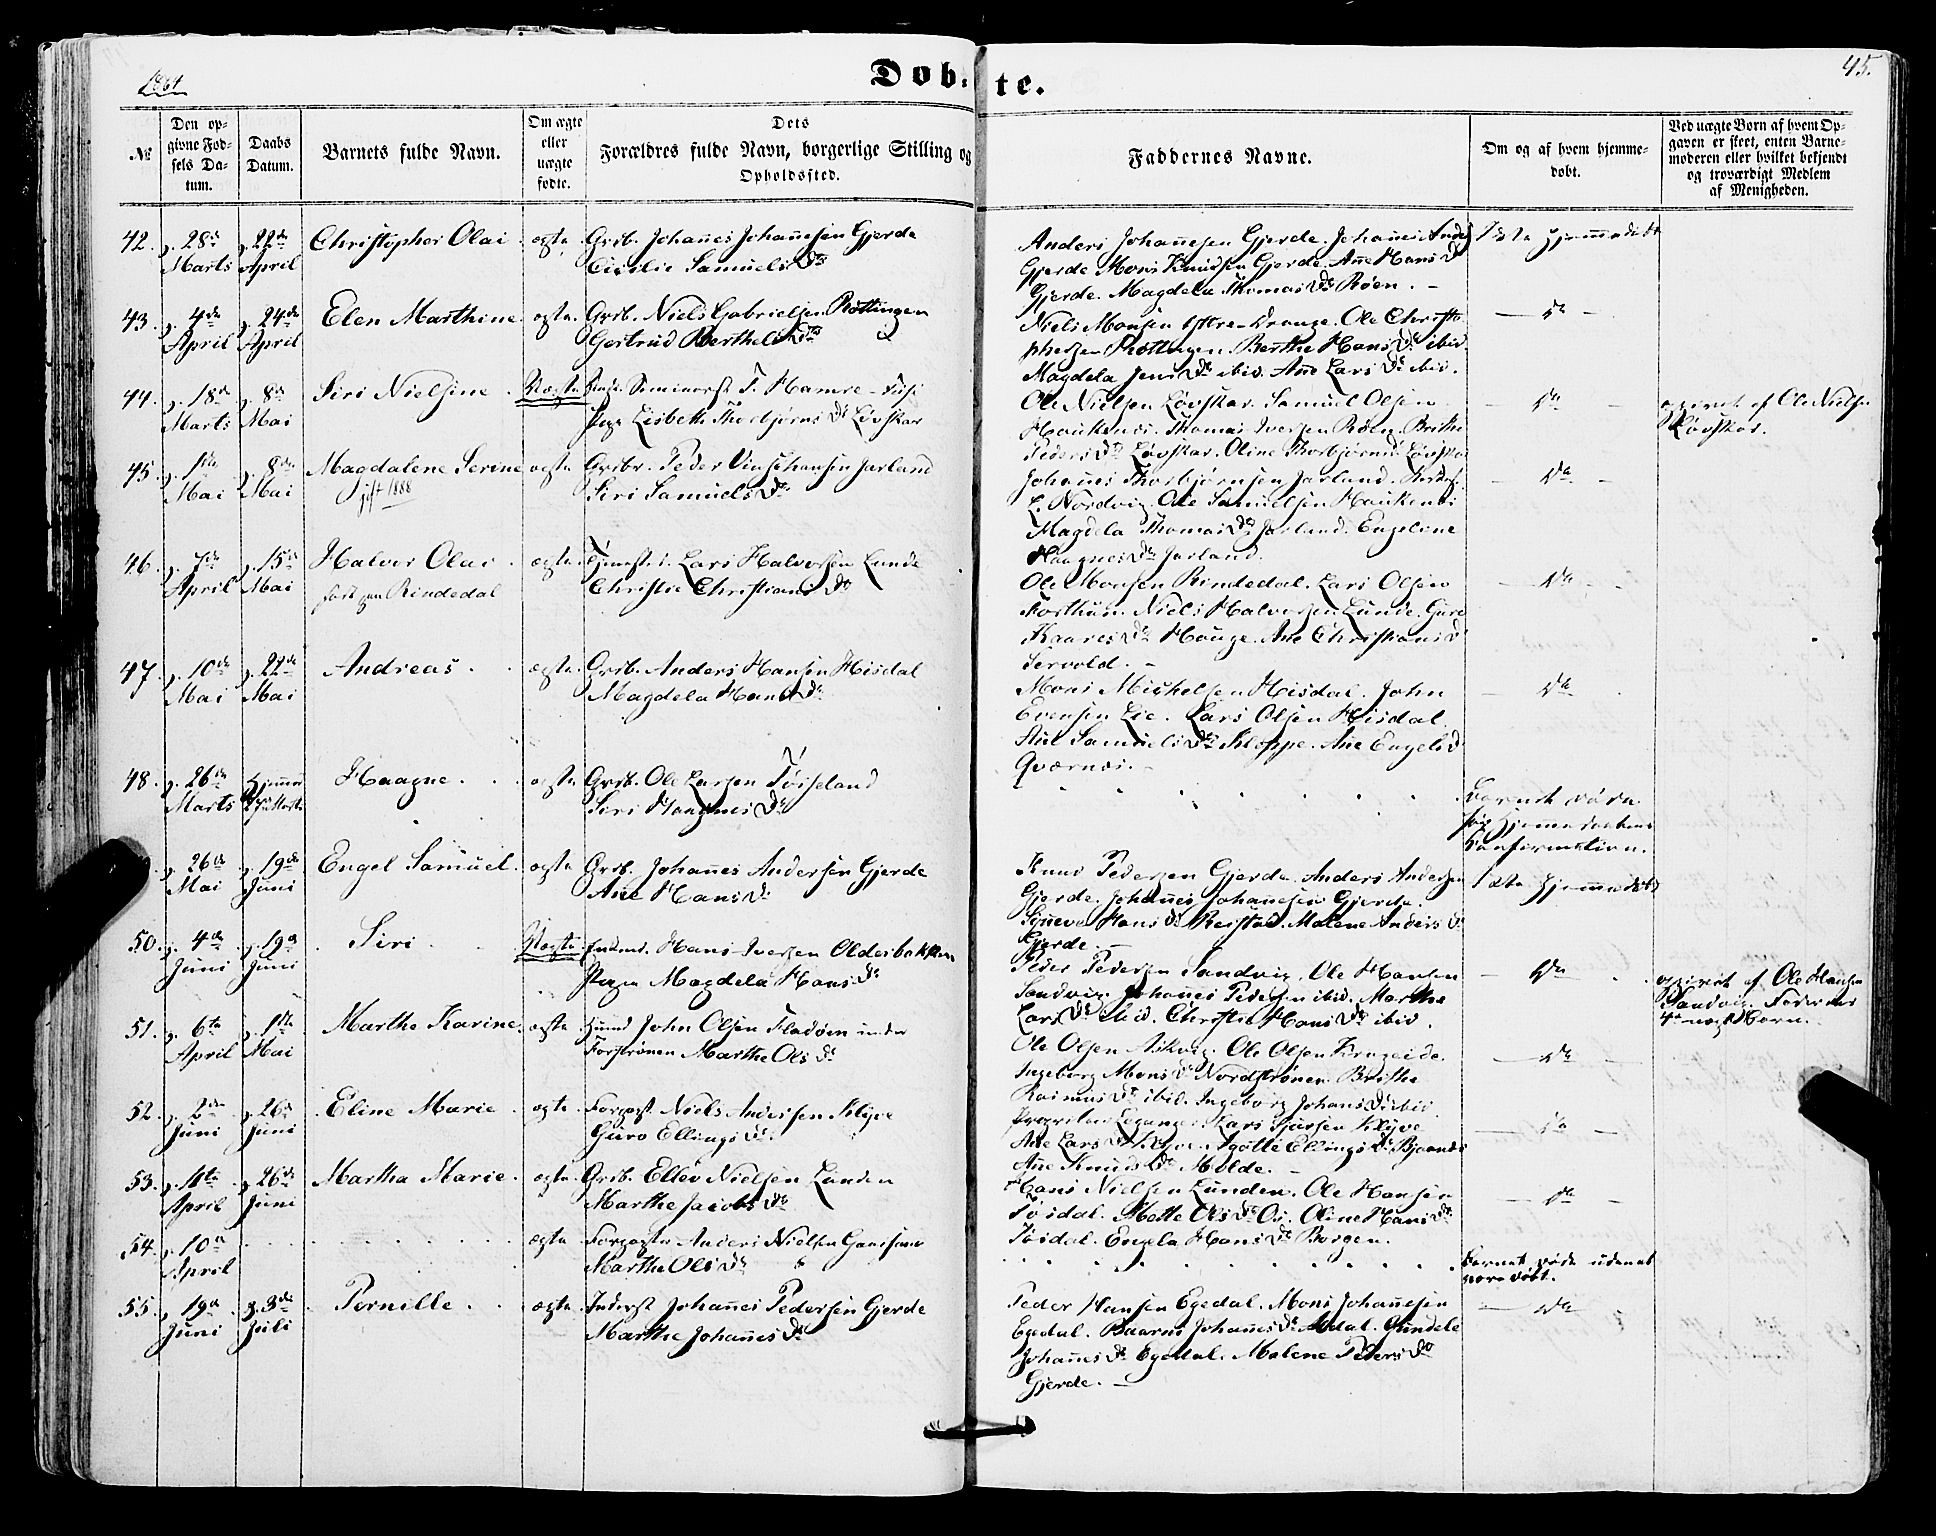 1864
Døbte.
45.
No
Den opgivne Fødsels Datum.
Daabs Datum.
Barnets fulde Navn.
Om ægte eller uægte fødte.
Dets Forældres fulde Navn, borgerlige Stilling og Opholdssted.
Faddernes Navne.
Om og af hvem hjemmedøbt.
Ved uægte Børn af hvem Opgaven er skeet, enten Barnemoderen eller hvilket bekjendt og troværdigt Medlem af Menigheden.
42. 28de Marts 22de April Christopher Olai ægte Grdb. Johannes Johannesen Gjerde
Cicilie Samuels Dr
Anders Johannesen Gjerde. Johannes Anders
Gjerde Mons Knudsen Gjerde. Ane Hans D
Gjerde. Magdela Thomas Dr Røen.
43. 4de April 24de April Elen Marthine ægte Grdb. Niels Gabrielsen Røttingen
Gertrud Berthels Dr
Niels Monsen Drange. Ole Christo
phersen Røttingen. Berthe Hans Dr ibid.
Magdela Jens Dr ibid. Ane Lars Dr ibid.
Do
44. 18de Marts 8de Mai Siri Nielsine Uægte Seminarist T. Hamre
Pige Lisbeth Thorbjørns Dr Løvskar
Ole Nielsen Løvskar. Samuel Olsen
Haukenæs. Thomas Iversen Røen. Brithe
Peders Dr Løvskar. Oline Thorbjørns Løvskar
Do
opgivet af Ole Nielsen
Løvskar.
45. 1ste Mai 8de Mai Magdalene Serine ægte Grdbr. Peder Vinsentsen Jarland
gift 1888
Siri Samuels Dr
Johannes Thorbjørnsen Jarland.
L. Nordvig. Ole Samuelsen Haukenæs
Magdela Thomas Dr Jarland. Engeline
Haagnes Dr Jarland.
Do
46. 7de April 15de Mai Halvor Olai ægte Lars Halvorsen Lunde
født paa Rindedal
Christie Christians Dr
Ole Monsen Rindedal. Lars Olsen
Korthun. Niels Halvorsen Lunde. Guro
Kaares Dr Hauge. Ane Christians D
Servold.
Do
47. 10de Mai 22de Mai Andreas ægte Grdb. Anders Hansen Hisdal
Magdela Hans Dr
Mons Michelsen Hisdal. John
Evensen Lie. Lars Olsen Hisdal
Ane Samuels Dr Kloppe. Ane Engels D
Qværnæs.
Do
48. 26de Marts Haagne ægte Grdb. Ole Larsen Tøsseland
Siri Haagnes Dr
Barnet døde
før Hjemmedaabens
Konfirmation.
26de Mai 19de Juni Engel Samuel ægte Grdb. Johannes Andersen Gjerde
Ane Hans Dr
Knud Pedersen Gjerde. Anders Andersen
Gjerde. Johannes Johannesen Gjerde.
Synneva Hans Dr Reistad. Malene Anders Dr
Gjerde.
50. 4de Juni 19de Juni Siri Uægte Hans Iversen Oldesbakken
Pigen Magdela Hans Dr
Peder Pedersen Sandvig. Ole Hansen
Sandvig. Johannes Pedersen ibid. Marthe
Lars Dr ibid. Christie Hans Dr ibid.
Do
opgivet af Ole Hansen
Sandvig.
51. 6te April 1ste Mai Marthe Karine ægte Huusmd John Olsen Fladøen under
Forstrønen Marthe Ols Dr
Ole Olsen Askvig. Ole Olsen
Ingeborg Mons Dr Nordstrønen. Brithe
Rasmus Dr ibid. Ingeborg Johans Dr ibid.
Do
52. 2den Juni 26de Juni Eline Marie ægte Forpgst Niels Andersen Klyve
Guro Ellings Dr
Lars Sjursen Klyve
Ane Lars Dr Klyve. Ellings Dr Bjaanæs
Ane Knuds Dr Molde.
Do
53. April 26de Juni Martha Marie ægte Grdb. Ellev Nielsen Lunden
Marthe Jacobs Dr
Hans Nielsen Lunden. Ole Hansen
Tøsdal. Mette Ols Dr Os. Oline Hans Dr
Tøsdal. Engela Hans Dr Borgen.
Do
54. 10de April ægte Forpagter Anders Nielsen
Marthe Ols Dr
Barnet døde uden at
være døbt.
55. 19de Juni 3die Juli Pernille ægte Inderst Johannes Pedersen Gjerde
Marthe Johannes Dr
Peder Hansen Egedal. Mons Johannesen
Egedal. Johannes Dr Aadal. Gundele
Johannes Dr Egedal. Malene Peders Dr
Gjerde.
Do